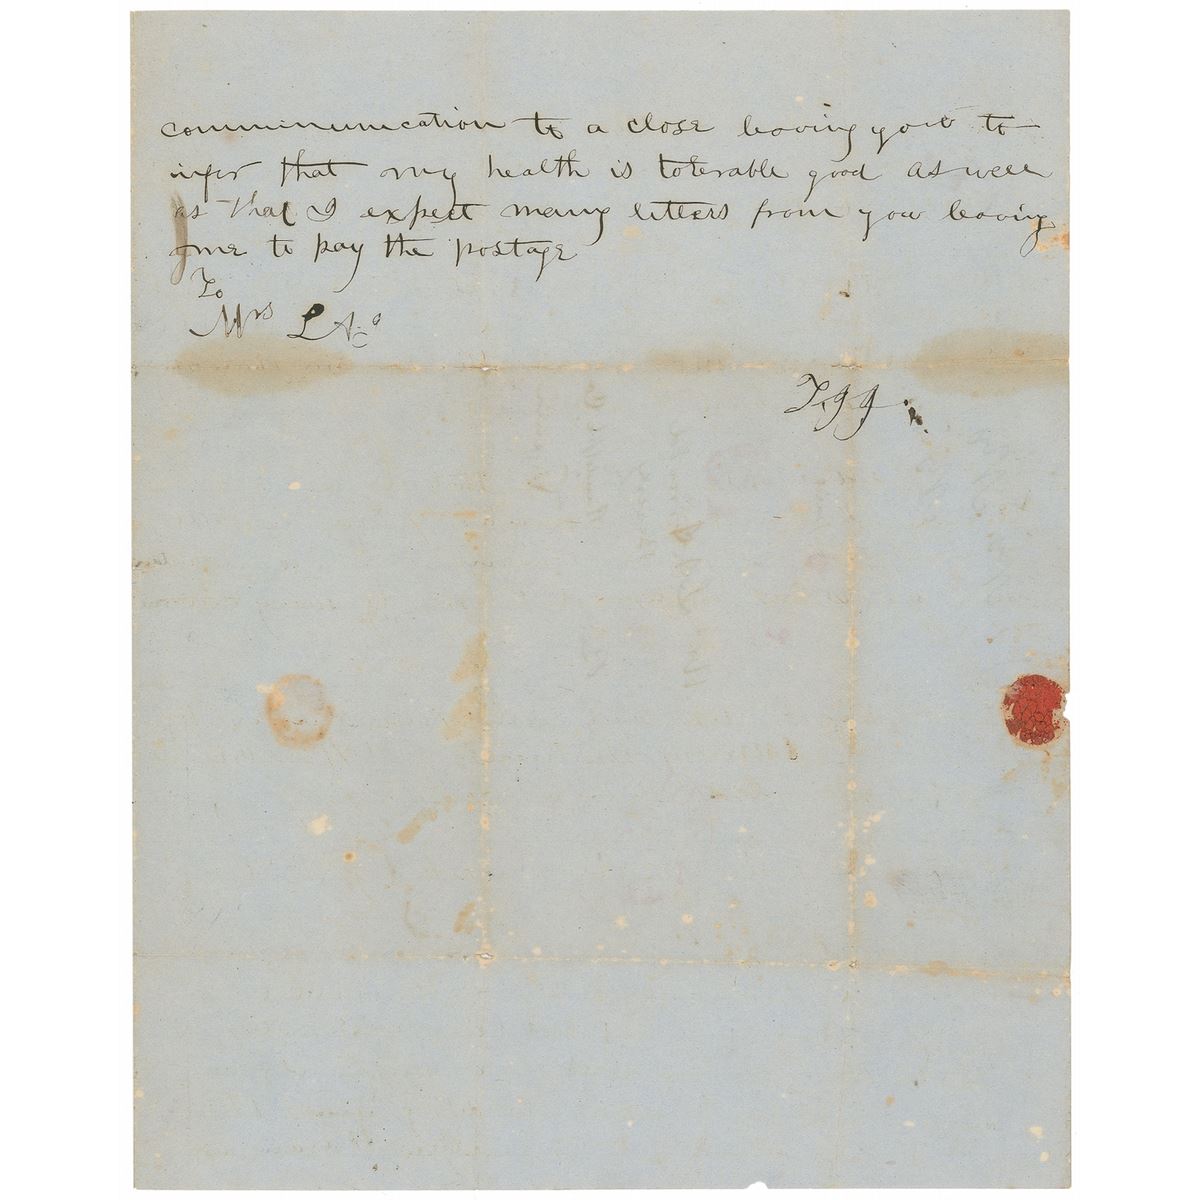 communication to a close leaving you to
infer that my health is tolerable good as well
as that I expect many letters from you leaving
me to pay the postage
To
Mrs L A
T. J J.